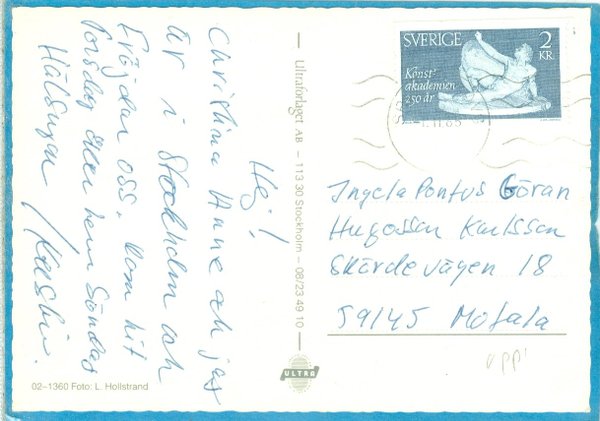 Hej!
Christina Anne och jag
är i Stockholm och
fröjdar oss. Kom hit
torsdag åker hem Söndag
Hälsningar Kerstin.
SVERIGE 2 KR
Konst-
akademien
250 år
Ingela Pontus Göran
Hugosson Karlsson
Skördevägen 18
59145 Motala
Ultraförlaget AB – 113 30 Stockholm – 08/23 49 10
ULTRA
02–1360 Foto: L. Hollstrand